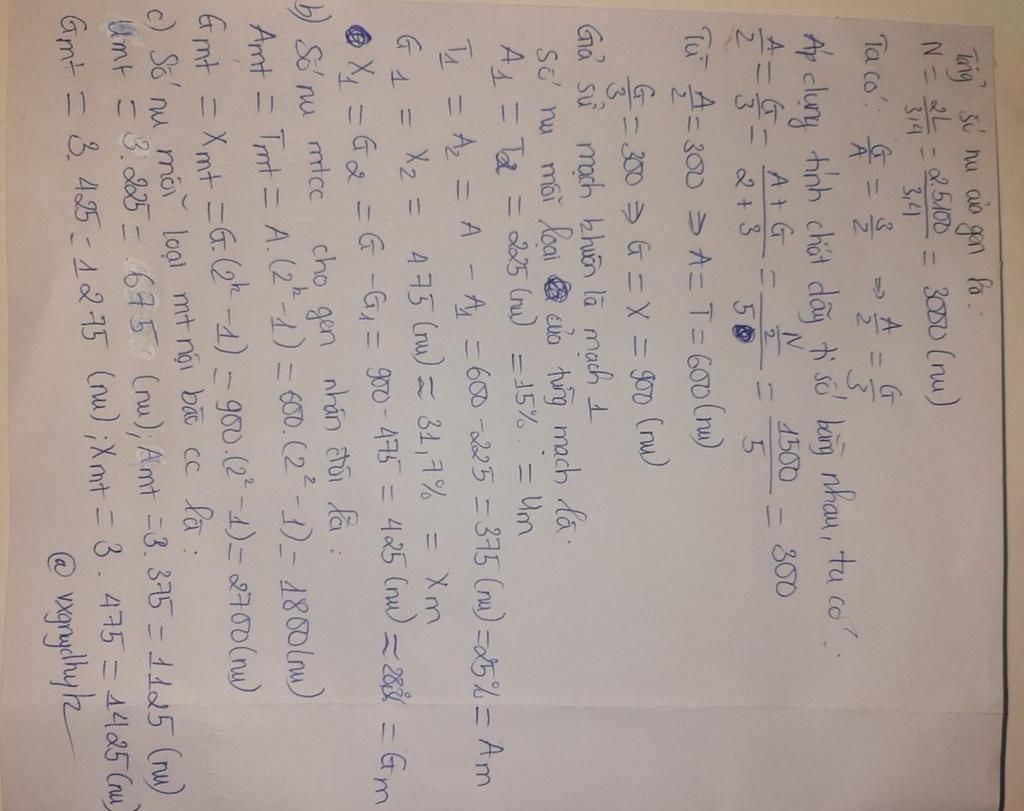 Tổng số nu của gen là:
N = 2L/3,4 = 2.5100/3,4 = 3000 (nu)
Ta có: G/A = 3/2 => A/2 = G/3
Áp dụng tính chất dãy tỉ số bằng nhau, ta có:
A/2 = G/3 = A+G/2+3 = N/2/5 = 1500/5 = 300
Từ A/2 = 300 => A = T = 600 (nu)
G/3 = 300 => G = X = 900 (nu)
Giả sử mạch khuôn là mạch 1
Số nu mỗi loại của từng mạch là:
A1 = T2 = 225 (nu) = 15% = Um
T1 = A2 = A - A1 = 600 - 225 = 375 (nu) = 25% = Am
G1 = X2 = 475 (nu) ≈ 31,7% = Xm
X1 = G2 = G - G1 = 900 - 475 = 425 (nu) ≈ = Gm
b) Số nu mtcc cho gen nhân đôi là:
Amt = Tmt = A.(2^k - 1) = 600.(2² - 1) = 1800 (nu)
Gmt = Xmt = G.(2^k - 1) = 900.(2² - 1) = 2700 (nu)
c) Số nu mỗi loại mt nội bào cc là:
Umt = 3.225 = 675 (nu); Amt = 3.375 = 1125 (nu)
Gmt = 3.425 = 1275 (nu); Xmt = 3.475 = 1425 (nu)